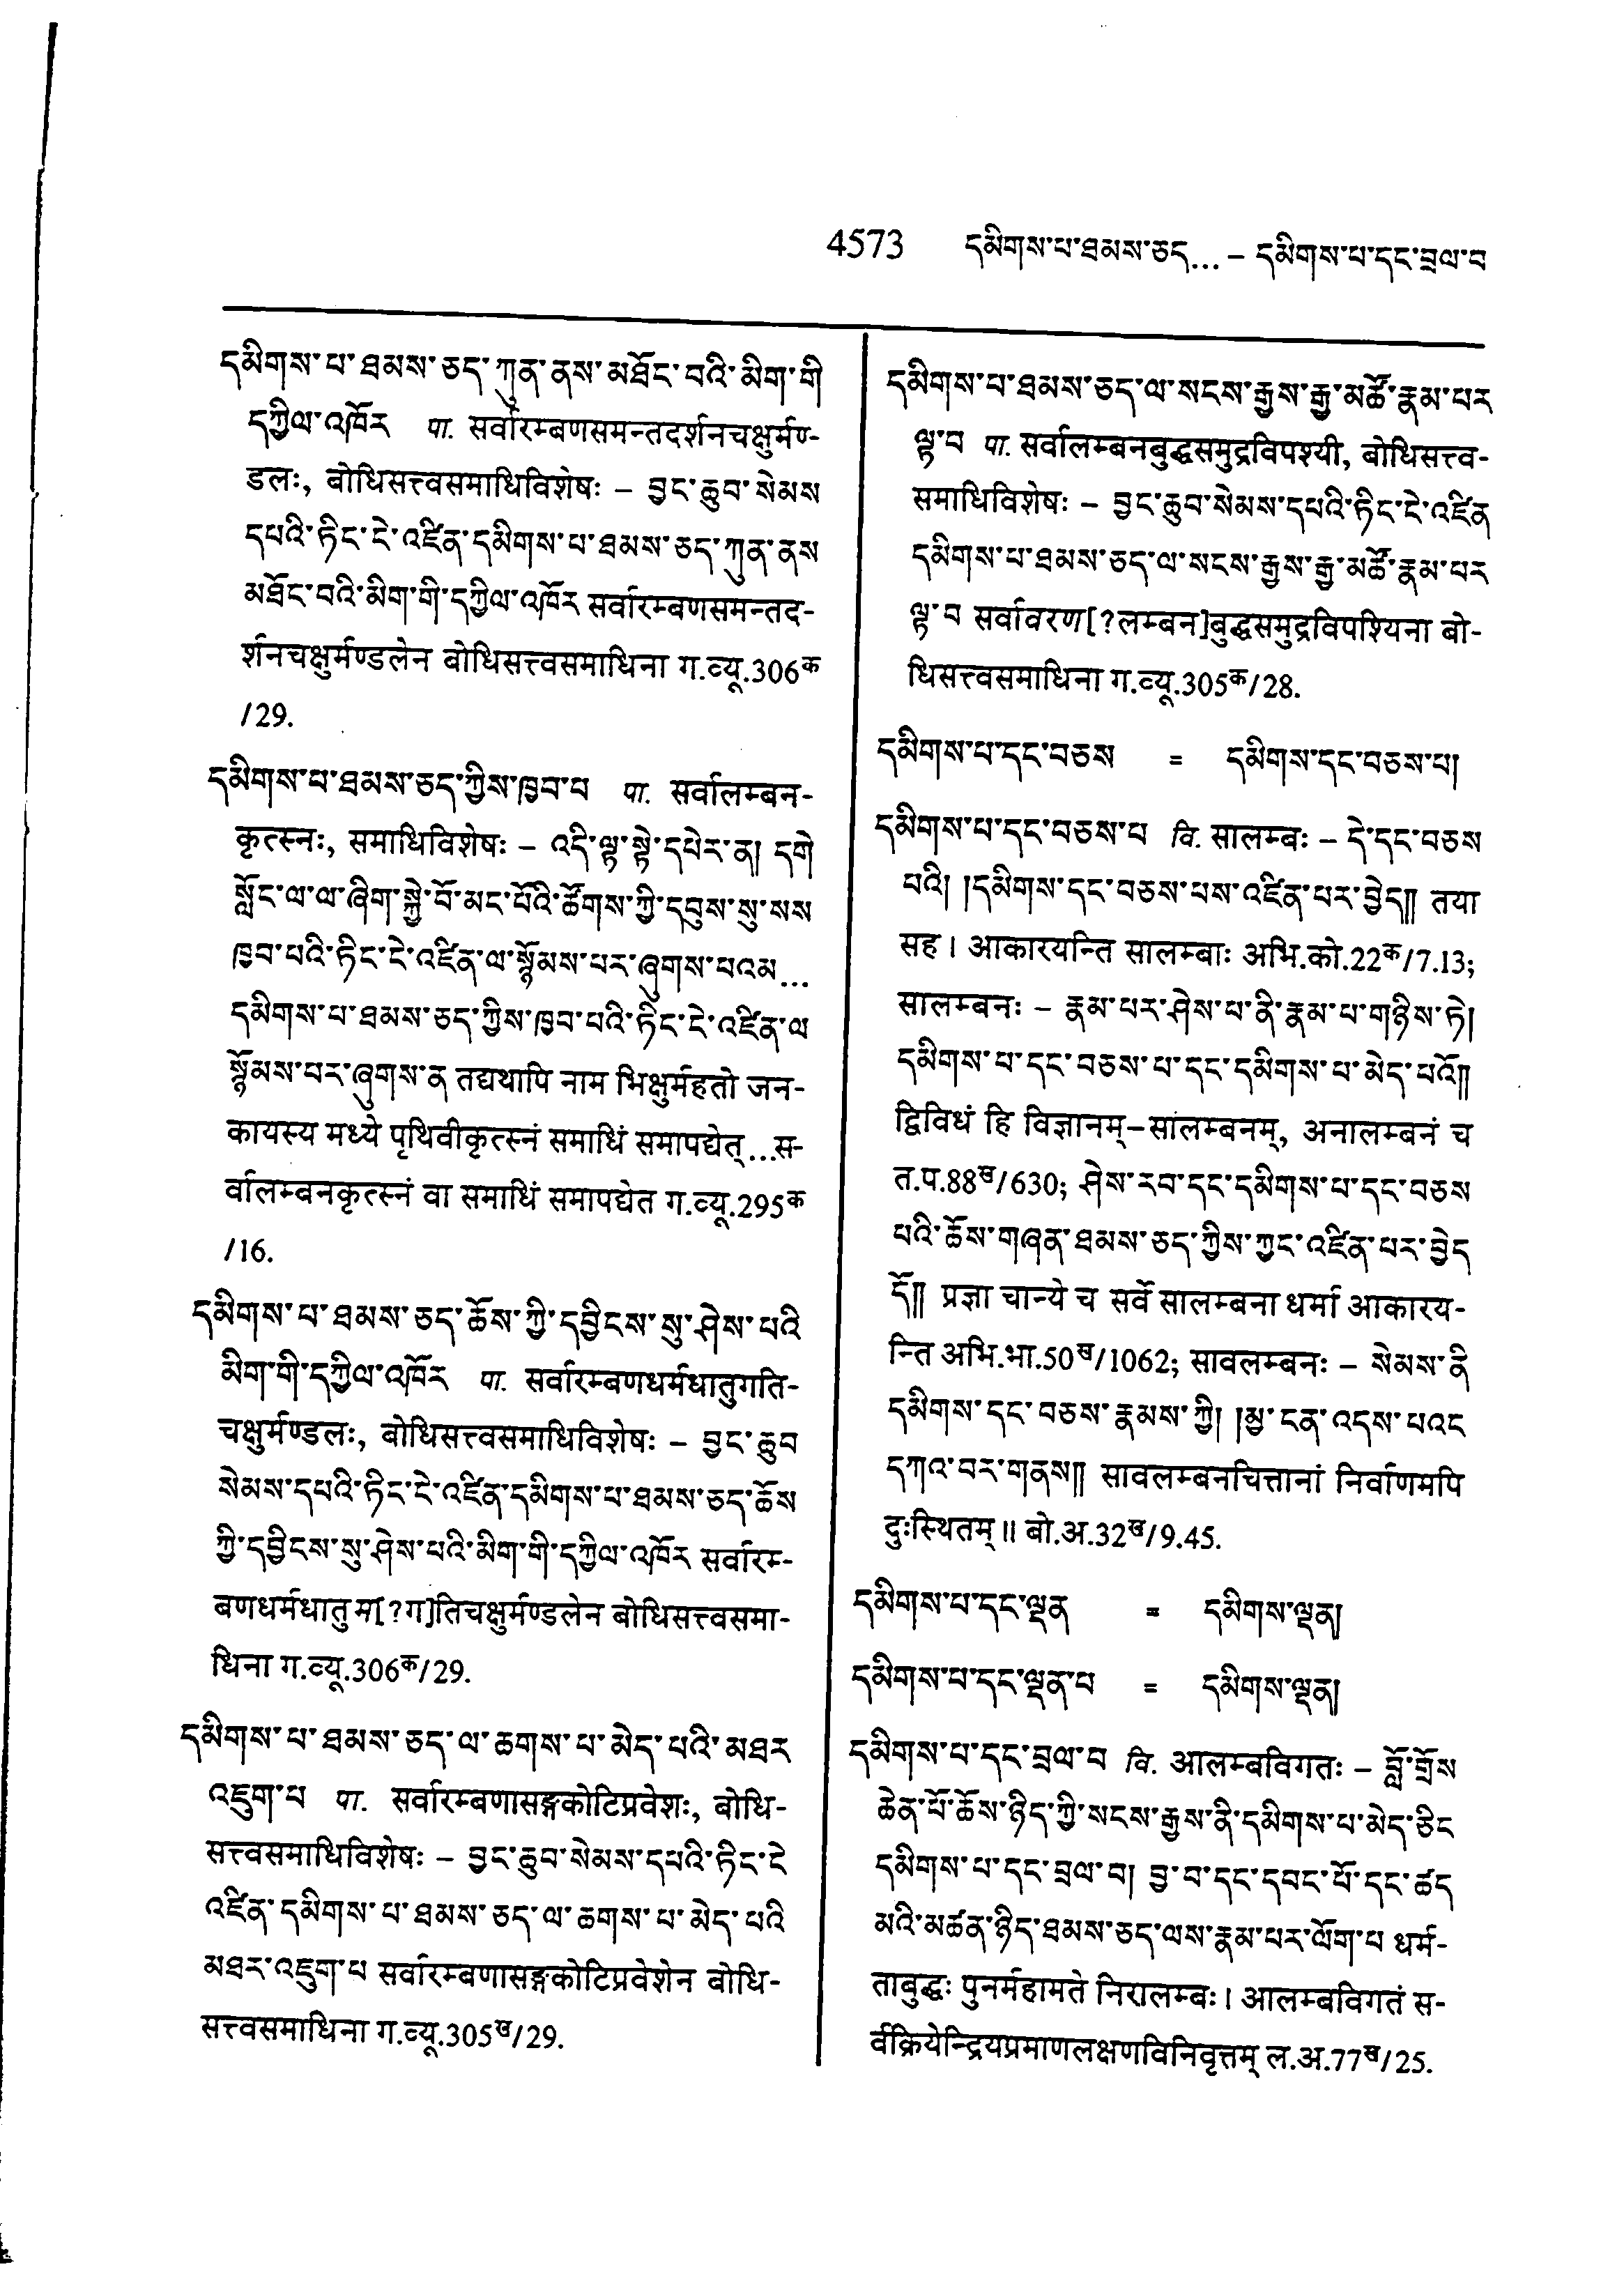 4573 དམིགས་པ་ཐམས་ཅད...– དམིགས་པ་དང་བྲལ་བ
དམིགས་པ་ཐམས་ཅད་ཀུན་ནས་མཐོང་བའི་མིག་གི
དཀྱིལ་འཁོར པा. सर्वारम्बणसमन्तदर्शनचक्षुर्मण्-
डलः, बोधिसत्त्वसमाधिविशेषः – བྱང་ཆུབ་སེམས
དཔའི་ཏིང་ངེ་འཛིན་དམིགས་པ་ཐམས་ཅད་ཀུན་ནས
མཐོང་བའི་མིག་གི་དཀྱིལ་འཁོར सर्वारम्बणसमन्तद-
र्शनचक्षुर्मण्डलेन बोधिसत्त्वसमाधिना ग.व्यू.306क
/29.
དམིགས་པ་ཐམས་ཅད་ཀྱིས་ཁྱབ་པ पा. सर्वालम्बन-
कृत्स्नः, समाधिविशेषः – འདི་ལྟ་སྟེ་དཔེར་ན། དགེ
སློང་ལ་ལ་ཞིག་སྐྱེ་བོ་མང་པོའི་ཚོགས་ཀྱི་དབུས་སུ་སས
ཁྱབ་པའི་ཏིང་ངེ་འཛིན་ལ་སྙོམས་པར་ཞུགས་པའམ...
དམིགས་པ་ཐམས་ཅད་ཀྱིས་ཁྱབ་པའི་ཏིང་ངེ་འཛིན་ལ
སྙོམས་པར་ཞུགས་ན तद्यथापि नाम भिक्षुर्महतो जन-
कायस्य मध्ये पृथिवीकृत्स्नं समाधिं समापद्येत्...स-
र्वालम्बनकृत्स्नं वा समाधिं समापद्येत ग.व्यू.295क
/16.
དམིགས་པ་ཐམས་ཅད་ཆོས་ཀྱི་དབྱིངས་སུ་ཤེས་པའི
མིག་གི་དཀྱིལ་འཁོར पा. सर्वारम्बणधर्मधातुगति-
चक्षुर्मण्डलः, बोधिसत्त्वसमाधिविशेषः – བྱང་ཆུབ
སེམས་དཔའི་ཏིང་ངེ་འཛིན་དམིགས་པ་ཐམས་ཅད་ཆོས
ཀྱི་དབྱིངས་སུ་ཤེས་པའི་མིག་གི་དཀྱིལ་འཁོར सर्वारम्-
बणधर्मधातुम[?ग]तिचक्षुर्मण्डलेन बोधिसत्त्वसमा-
धिना ग.व्यू.306क/29.
དམིགས་པ་ཐམས་ཅད་ལ་ཆགས་པ་མེད་པའི་མཐར
འཇུག་པ पा. सर्वारम्बणासङ्गकोटिप्रवेशः, बोधि-
सत्त्वसमाधिविशेषः – བྱང་ཆུབ་སེམས་དཔའི་ཏིང་ངེ
འཛིན་དམིགས་པ་ཐམས་ཅད་ལ་ཆགས་པ་མེད་པའི
མཐར་འཇུག་པ सर्वारम्बणासङ्गकोटिप्रवेशेन बोधि-
सत्त्वसमाधिना ग.व्यू.305ख/29.
དམིགས་པ་ཐམས་ཅད་ལ་སངས་རྒྱས་རྒྱ་མཚོ་རྣམ་པར
ལྟ་བ पा. सर्वालम्बनबुद्धसमुद्रविपश्यी, बोधिसत्त्व-
समाधिविशेषः – བྱང་ཆུབ་སེམས་དཔའི་ཏིང་ངེ་འཛིན
དམིགས་པ་ཐམས་ཅད་ལ་སངས་རྒྱས་རྒྱ་མཚོ་རྣམ་པར
ལྟ་བ सर्वावरण[?लम्बन]बुद्धसमुद्रविपश्यिना बो-
धिसत्त्वसमाधिना ग.व्यू.305क/28.
དམིགས་པ་དང་བཅས = དམིགས་དང་བཅས་པ།
དམིགས་པ་དང་བཅས་པ वि. सालम्बः – དེ་དང་བཅས
པའི། །དམིགས་དང་བཅས་པས་འཛིན་པར་བྱེད༎ तया
सह। आकारयन्ति सालम्बाः अभि.को.22क/7.13;
सालम्बनः – རྣམ་པར་ཤེས་པ་ནི་རྣམ་པ་གཉིས་ཏེ།
དམིགས་པ་དང་བཅས་པ་དང་དམིགས་པ་མེད་པའོ༎
द्विविधं हि विज्ञानम्–सालम्बनम्, अनालम्बनं च
त.प.88ख/630; ཤེས་རབ་དང་དམིགས་པ་དང་བཅས
པའི་ཆོས་གཞན་ཐམས་ཅད་ཀྱིས་ཀྱང་འཛིན་པར་བྱེད
དོ༎ प्रज्ञा चान्ये च सर्वे सालम्बना धर्मा आकारय-
न्ति अभि.भा.50ख/1062; सावलम्बनः – སེམས་ནི
དམིགས་དང་བཅས་རྣམས་ཀྱི། །མྱ་ངན་འདས་པའང
དཀའ་བར་གནས༎ सावलम्बनचित्तानां निर्वाणमपि
दुःस्थितम्॥ बो.अ.32ख/9.45.
དམིགས་པ་དང་ལྡན = དམིགས་ལྡན།
དམིགས་པ་དང་ལྡན་པ = དམིགས་ལྡན།
དམིགས་པ་དང་བྲལ་བ वि. आलम्बविगतः – བློ་གྲོས
ཆེན་པོ་ཆོས་ཉིད་ཀྱི་སངས་རྒྱས་ནི་དམིགས་པ་མེད་ཅིང
དམིགས་པ་དང་བྲལ་བ། བྱ་བ་དང་དབང་པོ་དང་ཚད
མའི་མཚན་ཉིད་ཐམས་ཅད་ལས་རྣམ་པར་ལོག་པ धर्म-
ताबुद्धः पुनर्महामते निरालम्बः। आलम्बविगतं स-
र्वक्रियेन्द्रियप्रमाणलक्षणविनिवृत्तम् ल.अ.77ख/25.